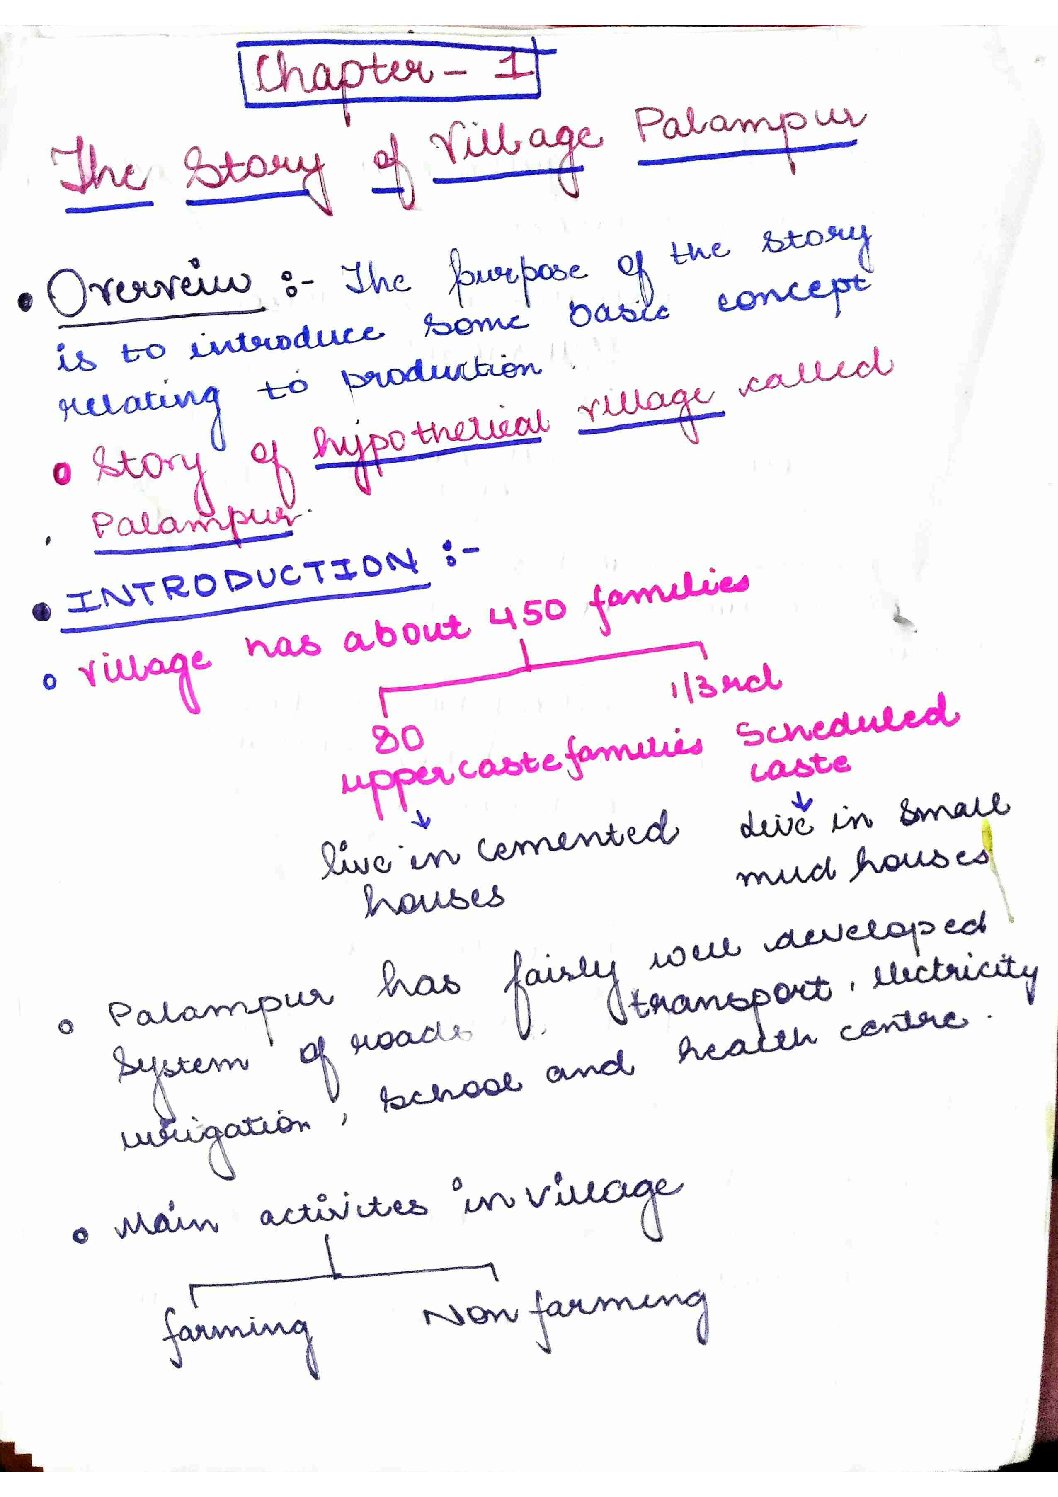 Chapter - 1
The Story of Village Palampur
• Overview :- The purpose of the story
is to introduce some basic concept
relating to production.
o Story of hypothetical village called
Palampur.
• INTRODUCTION :-
o village has about 450 families
80 1/3rd
upper caste families Scheduled
caste
↓ ↓
live in cemented live in small
houses mud houses
o Palampur has fairly well developed
system of roads, transport, electricity
irrigation, school and health centre.
o Main activites in village
farming Non farming